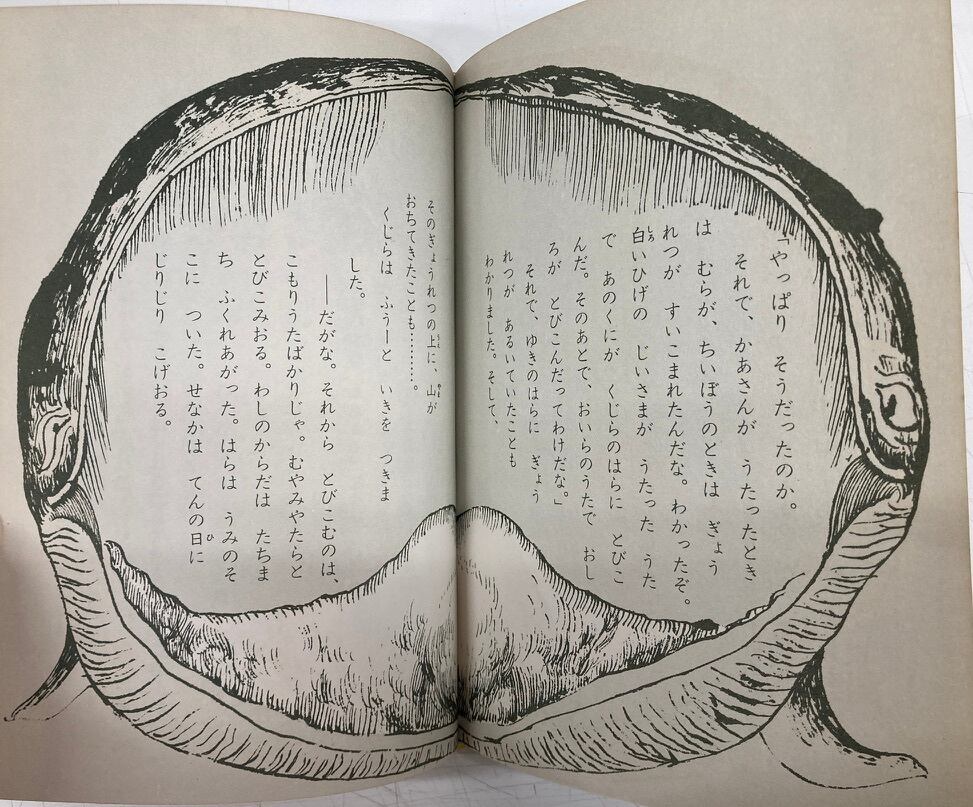 「やっぱり　そうだったのか。
それで、かあさんが　うたったとき
は　むらが、ちいぼうのときは　ぎょう
れつが　すいこまれたんだな。わかったぞ。
白いひげの　じいさまが　うたった　うた
で　あのくにが　くじらのはらに　とびこ
んだ。そのあとで、おいらのうたで　おし
ろが　とびこんだってわけだな。」
それで、ゆきのはらに　ぎょう
れつが　あるいていたことも
わかりました。そして、
そのぎょうれつの上に、山が
おちてきたことも………。
くじらは　ふうーと　いきを　つきま
した。
――だがな。それから　とびこむのは、
こもりうたばかりじゃ。むやみやたらと
とびこみおる。わしのからだは　たちま
ち　ふくれあがった。はらは　うみのそ
こに　ついた。せなかは　てんの日に
じりじり　こげおる。